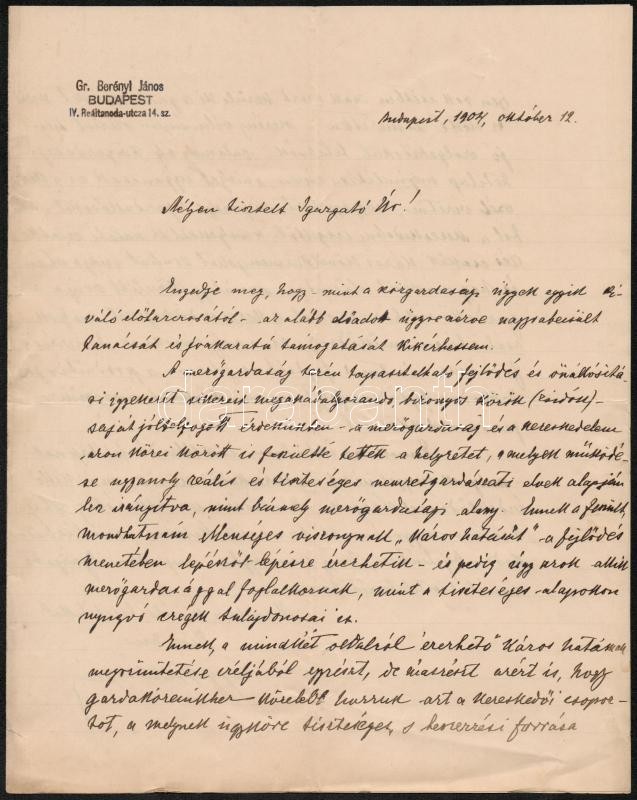 Gr. Berényi János
BUDAPEST
IV. Reáltanoda-utcza 14. sz.
Budapest, 1904, október 12.
Mélyen tisztelt Igazgató Úr!
Engedje meg, hogy - mint a közgazdasági ügyek egyik ki-
váló előharczosától - az alább előadott ügyre nézve nagyrabecsült
tanácsát és jóakaratú támogatását kikérhessem.
A mezőgazdaság terén tapasztalható fejlődés és önállósítá-
si igyekezet sikereit megakadályozandó, bizonyos körök
saját jólfelfogott érdekükben - a mezőgazdaság és a kereskedelem
azon körei között is feszültté tették a helyzetet, a melyek működé-
se ugyanoly reális és tisztességes nemzetgazdászati elvek alapján
lesz irányítva, mint bármely mezőgazdasági Ennek a feszült,
mondhatnám viszonynak "káros hatását" a fejlődés
menetében lépésről lépésre érezhetik - és pedig úgy azok a kik
mezőgazdasággal foglalkoznak, mint a tisztességes alapokon
nyugvó czégek tulajdonosai is.
Ennek, a mindkét oldalról érezhető káros hatásnak
megszüntetése czéljából egyrészt, de másrészt azért is, hogy
gazdaköreinkhez közelebb hozzuk azt a kereskedői csopor-
tot, a melynek ügyköre tisztességes, s beszerzési forrása
darabanth